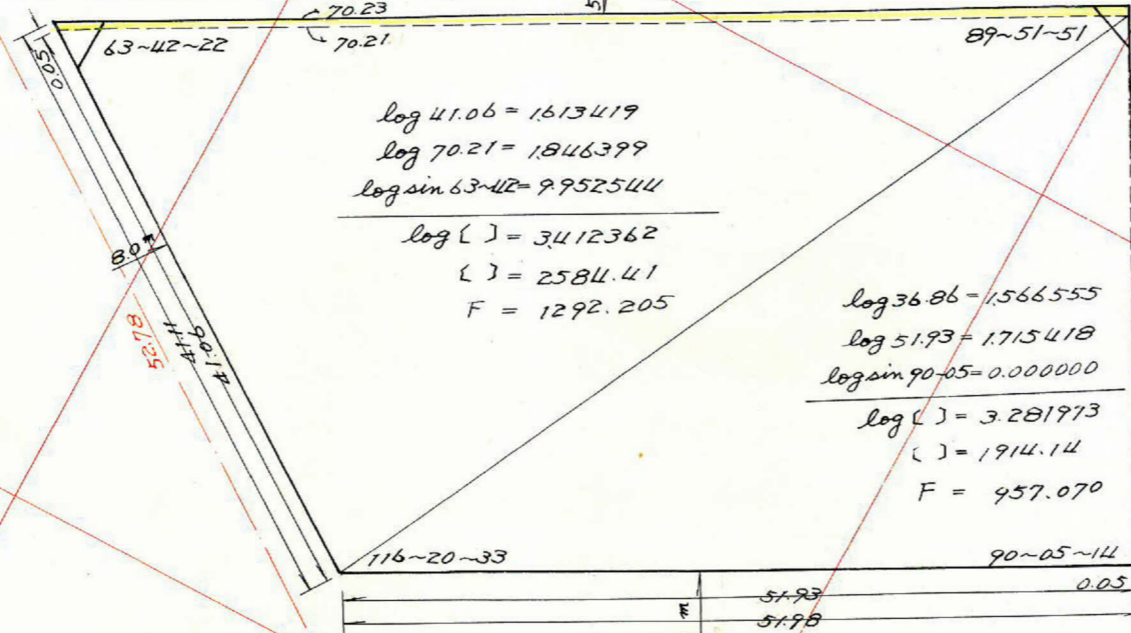 70.23
70.21
5
63~42~22
89~51~51
0.05
log 41.06 = 1.613419
log 70.21 = 1.846399
log sin 63~42 = 9.952544
log [ ] = 3.412362
[ ] = 2584.41
F = 1292.205
8.0
52.78
41.11
41.06
log 36.86 = 1.566555
log 51.93 = 1.715418
log sin 90-05 = 0.000000
log [ ] = 3.281973
[ ] = 1914.14
F = 957.070
116~20~33
90~05~14
0.05
51.93
51.98
m